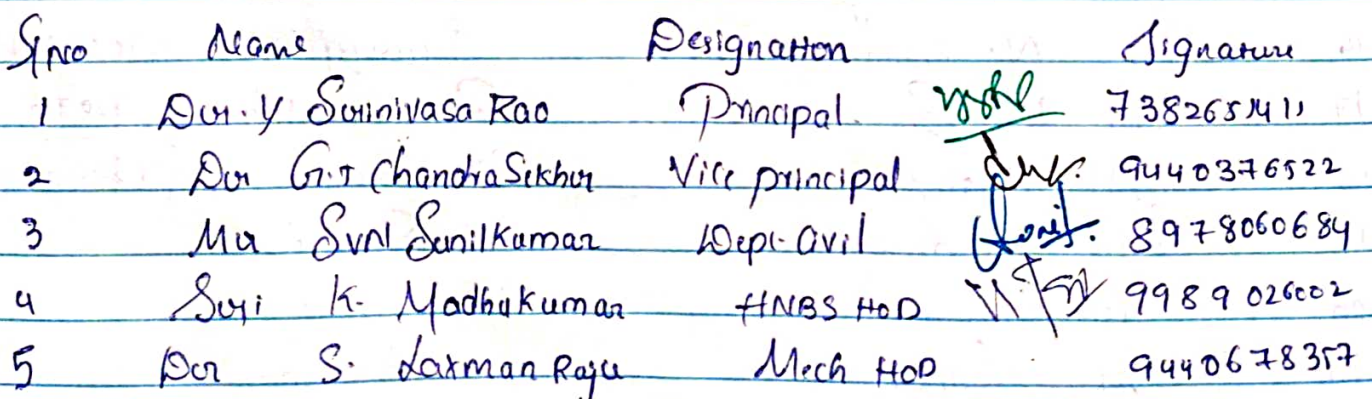 S/no Name Designation Signature
1 Dr. Y Srinivasa Rao Principal 7382651411
2 Dr G.T ChandraSekhr Vice principal 9440376522
3 Mr SVNL Sunilkumar Dept. Civil 8978060684
4 Sri K. Madhukumar HNBS HOD 9989026002
5 Dr S. Laxman Raju Mech HOD 9440678357